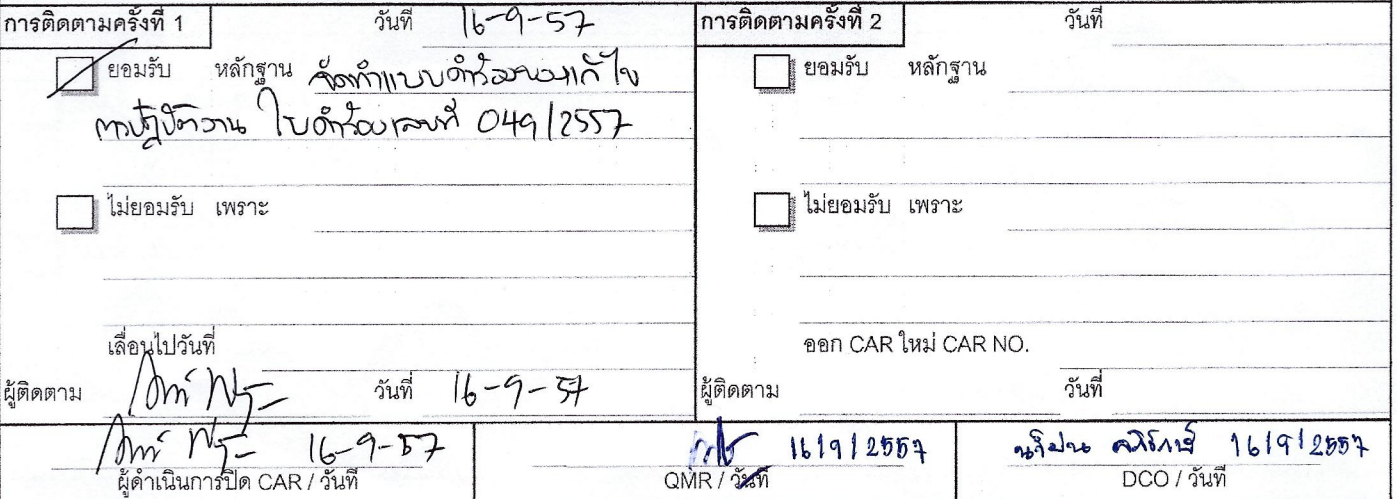 การติดตามครั้งที่ 1 วันที่ 16-9-57
ยอมรับ หลักฐาน จัดทำแบบคำร้องขอแก้ไข
การปฏิบัติงาน ใบคำร้องเลขที่ 049/2557
ไม่ยอมรับ เพราะ
เลื่อนไปวันที่
ผู้ติดตาม วันที่ 16-9-57
การติดตามครั้งที่ 2 วันที่
ยอมรับ หลักฐาน
ไม่ยอมรับ เพราะ
ออก CAR ใหม่ CAR NO.
ผู้ติดตาม วันที่
16-9-57
ผู้ดำเนินการปิด CAR / วันที่
16/9/2557
QMR / วันที่
16/9/2557
DCO / วันที่